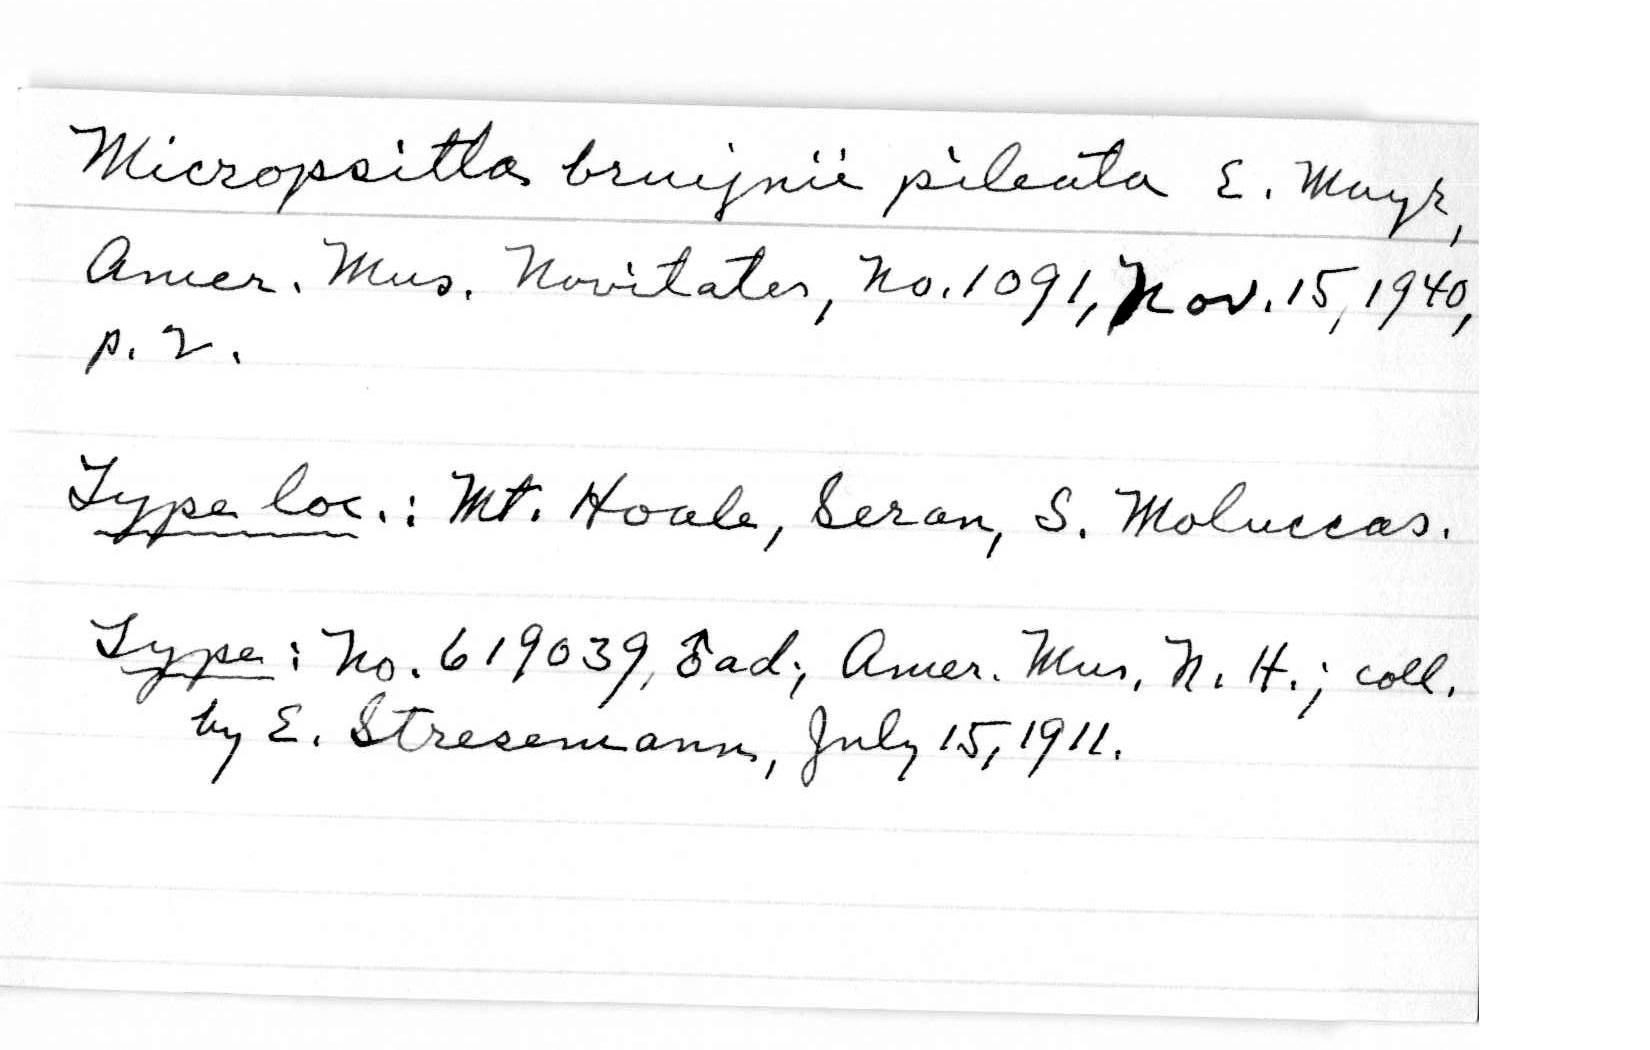 Micropsitta bruijnii pileata E. Mayr,
Amer. Mus. Novitates, No. 1091, Nov. 15, 1940,
p. 2.
Type loc.: Mt. Hoale, Seran, S. Moluccas.
Type: No. 619039, ♂ ad; Amer. Mus. N. H.; coll.
by E. Stresemann, July 15, 1911.